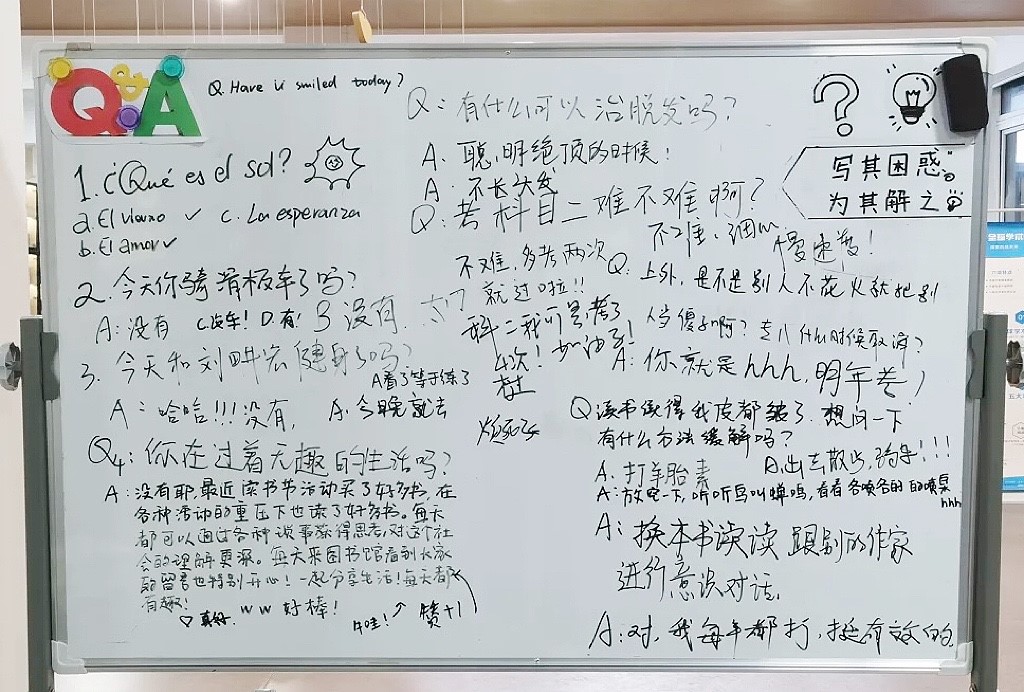 Q&A
Q. Have u smiled today?
1. ¿Qué es el sol?
a. El
c. La esperanza
b. El amor
2. 今天你骑滑板车了吗?
A: 没有 C. 汽车! D. 有! B 没有.
3. 今天和刘畊宏健身了吗?
A看了等于练了
A: 哈哈!!! 没有,
A. 今晚就去
Q4: 你在过着无趣的生活吗?
A: 没有耶,最近读书节活动买了好多书,在
各种活动的重压下也读了好多书。每天
都可以通过各种谈事获得思考,对这个社
会的理解更深。每天来图书馆看到大家
的留言也特别开心!一起分享生活!每天都
有趣!
♡ 真好.
ww 好棒!
牛哇!
赞+1
Q: 有什么可以治脱发吗?
A. 聪明绝顶的时候!
A. 不长头发
Q: 考科目二难不难啊?
不难,多考两次
就过啦!!
科二我可是考了
4次! 加油了!
烦死了
慢速度!
Q: 上外,是不是别人不花火就把别
人当傻子啊? 专八什么时候取消?
A: 你就是hhh, 明年考!
Q 读书读得我皮都皱了. 想问一下
有什么办法缓解吗?
A. 打羊胎素
A. 出去散步,骑车!!!
A: 放空一下,听听鸟叫蝉鸣,看看各喷各的的喷泉
hhh
A: 换本书读读 跟别的作家
进行意识对话.
A: 对,我每年都打,挺有效的.
写其困惑。
为其解之